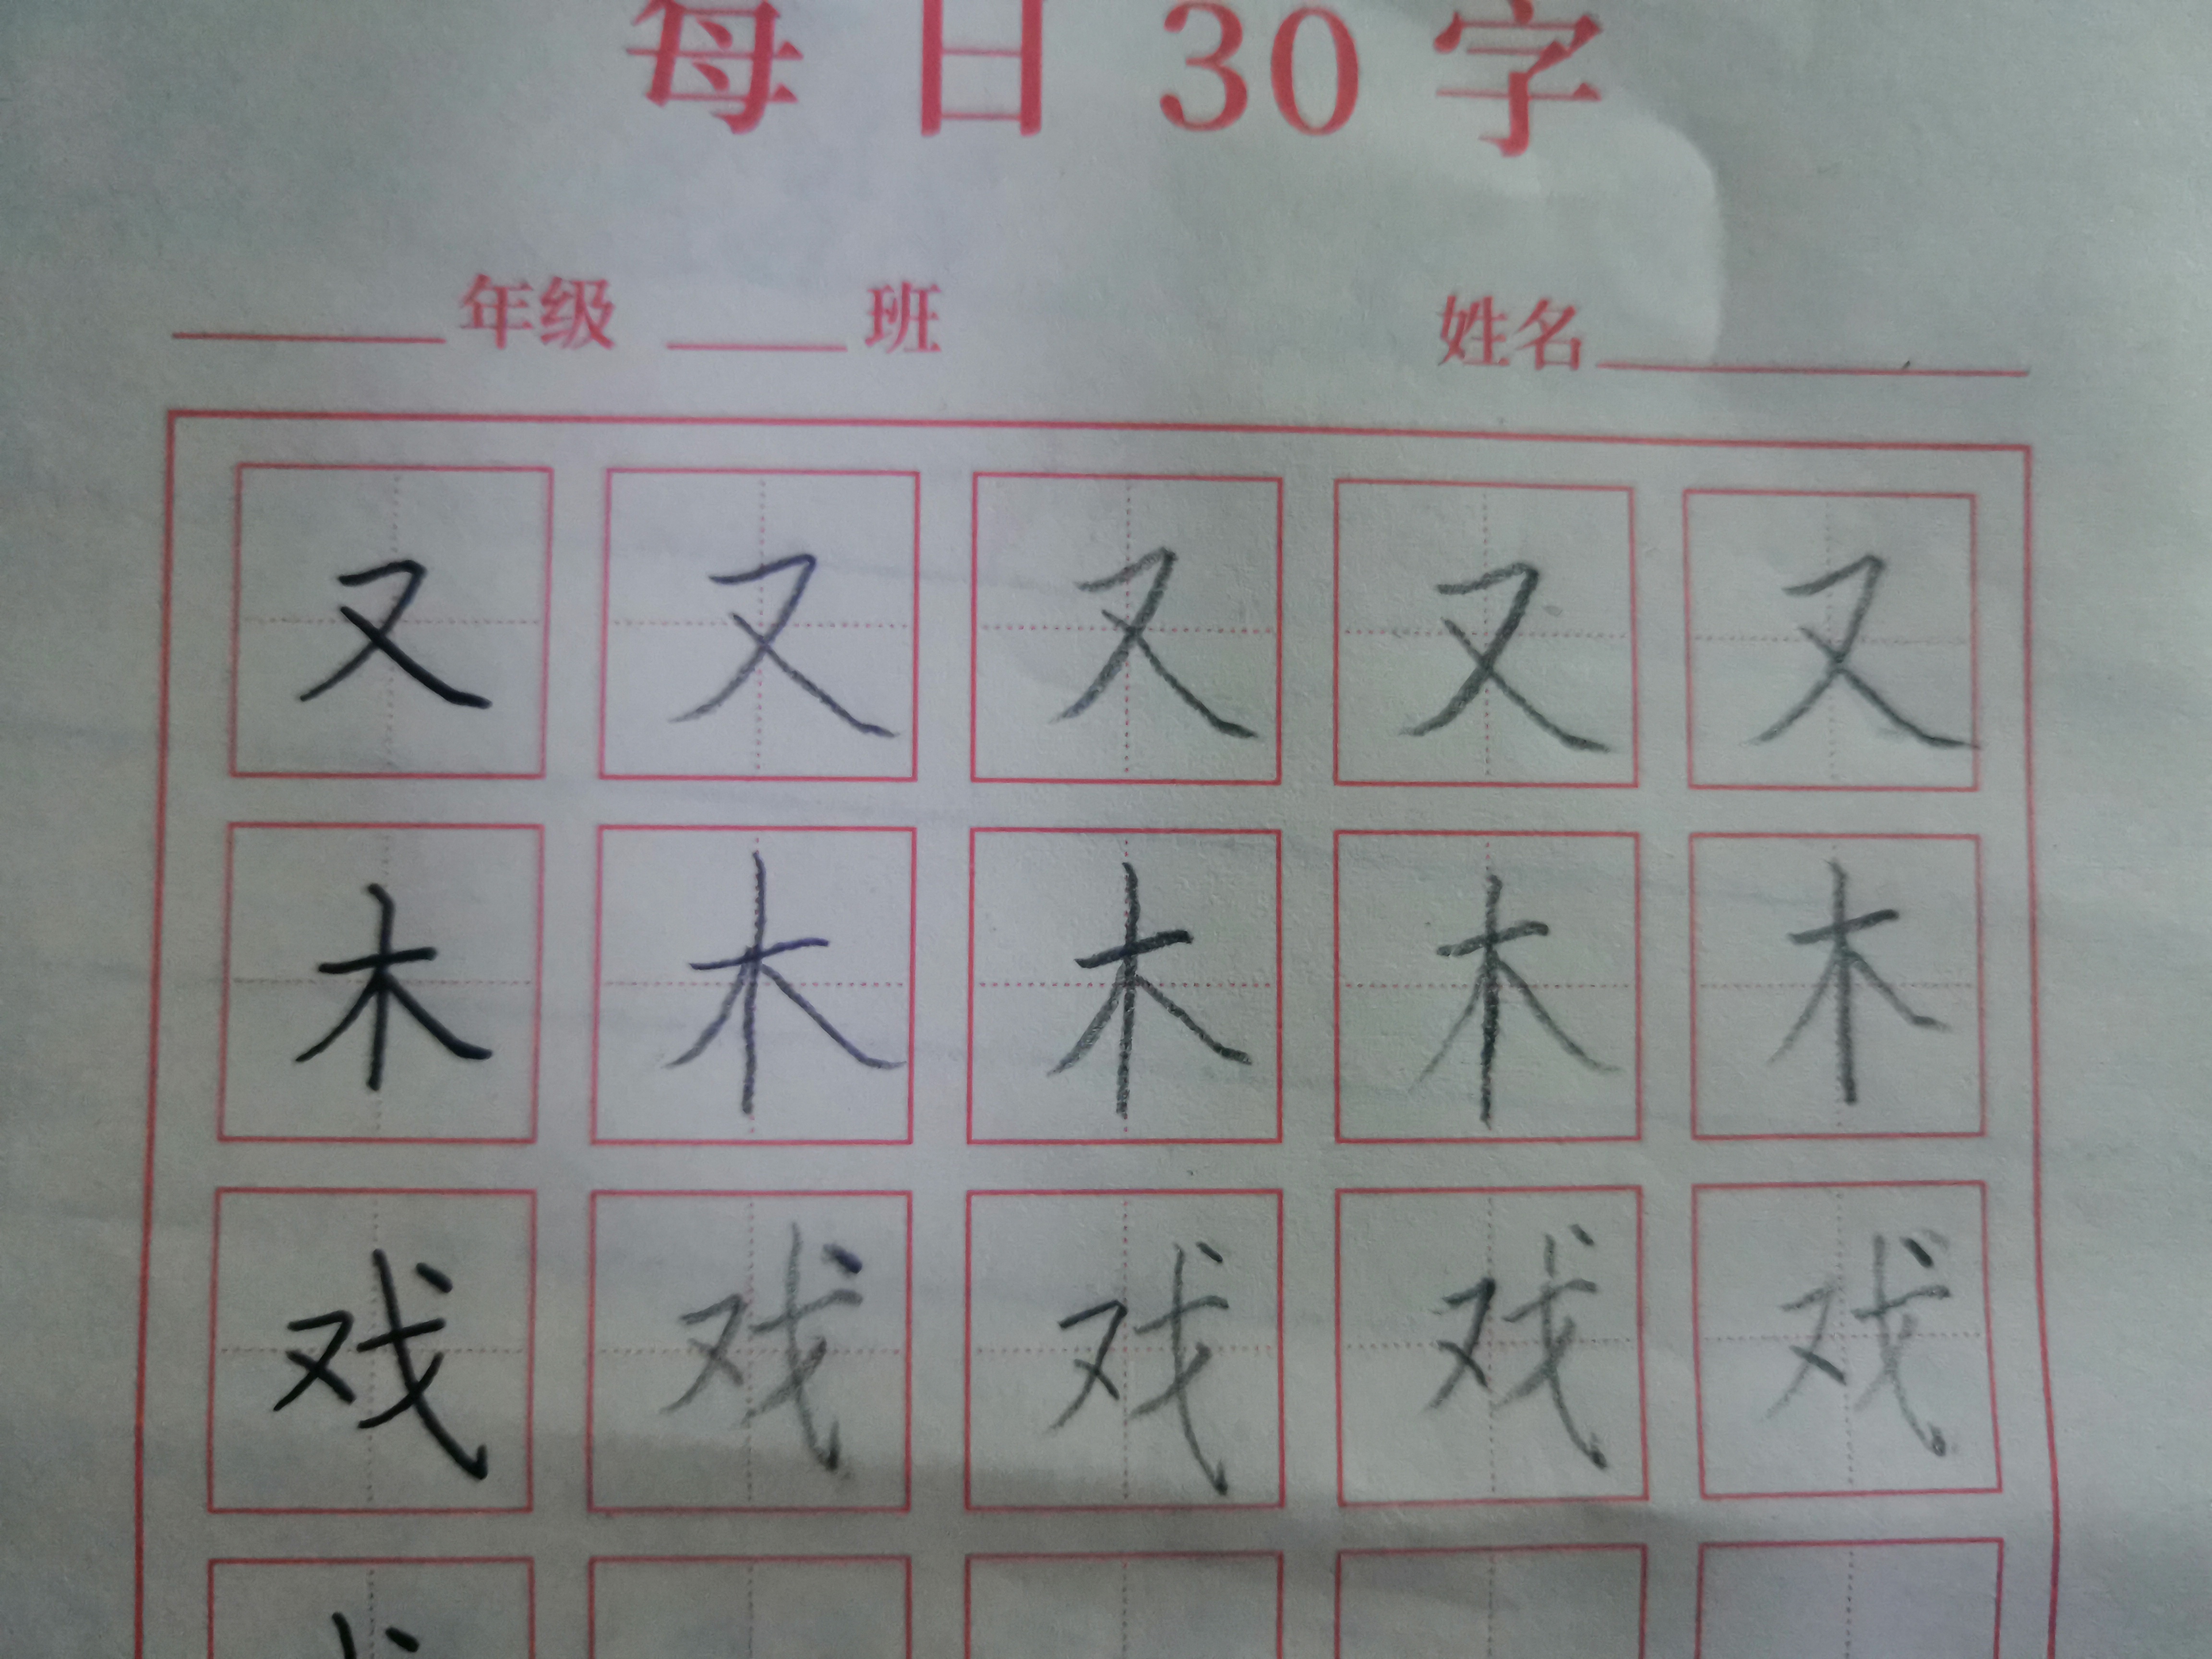 每日30字
年级 班 姓名
又 又 又 又 又
木 木 木 木 木
戏 戏 戏 戏 戏